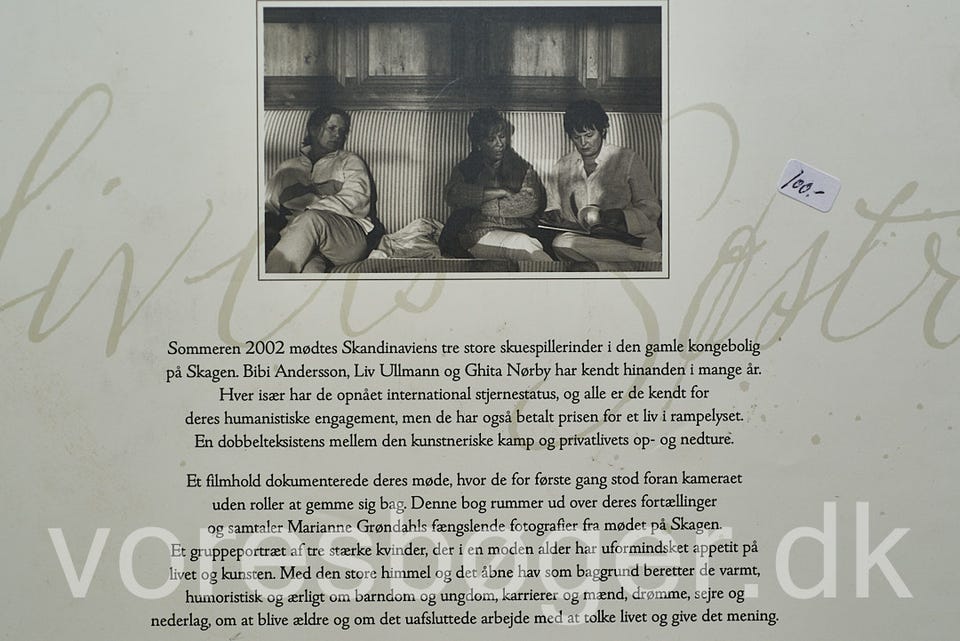 100.-
livets Søstr
Sommeren 2002 mødtes Skandinaviens tre store skuespillerinder i den gamle kongebolig
på Skagen. Bibi Andersson, Liv Ullmann og Ghita Nørby har kendt hinanden i mange år.
Hver især har de opnået international stjernestatus, og alle er de kendt for
deres humanistiske engagement, men de har også betalt prisen for et liv i rampelyset.
En dobbelteksistens mellem den kunstneriske kamp og privatlivets op- og nedture.
Et filmhold dokumenterede deres møde, hvor de for første gang stod foran kameraet
uden roller at gemme sig bag. Denne bog rummer ud over deres fortællinger
og samtaler Marianne Grøndahls fængslende fotografier fra mødet på Skagen.
Et gruppeportræt af tre stærke kvinder, der i en moden alder har uformindsket appetit på
livet og kunsten. Med den store himmel og det åbne hav som baggrund beretter de varmt,
humoristisk og ærligt om barndom og ungdom, karrierer og mænd, drømme, sejre og
nederlag, om at blive ældre og om det uafsluttede arbejde med at tolke livet og give det mening.
voresbøger.dk